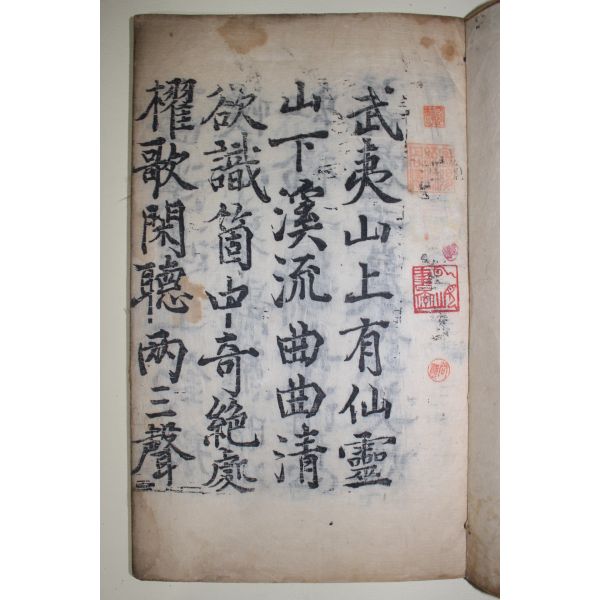 武夷山上有仙靈
山下溪流曲曲清
欲識箇中奇絶處
櫂歌閑聽兩三聲